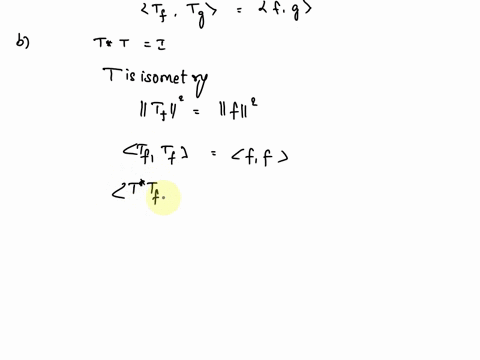 <Tf, Tg> = <f, g>
b) T* T = I
T is isometry
||Tf||² = ||f||²
<Tf, Tf> = <f, f>
<T* Tf,